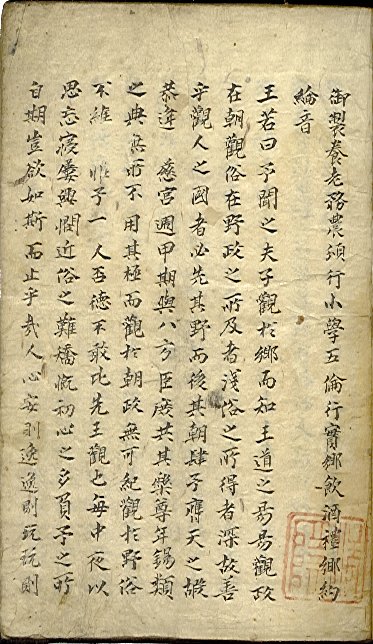 御製養老務農頒行小學五倫行實鄉飲酒禮鄉約
綸音
王若曰予聞之夫子觀於鄉而知王道之易易觀政
在朝觀俗在野政之所及者淺俗之所得者深故善
乎觀人之國者必先其野而後其朝肆予膺天之嘏
恭逢 慈宮周甲期與八方臣庶共其樂尊年錫類
之典無所不用其極而觀於朝政無可紀觀於野俗
不維 予一人否德不敢比先王觀也每中夜以
思忘寢屢興憫近俗之難矯慨初心之多負予之所
自期豈欲如斯而止乎哉人心安則逸逸則玩玩則